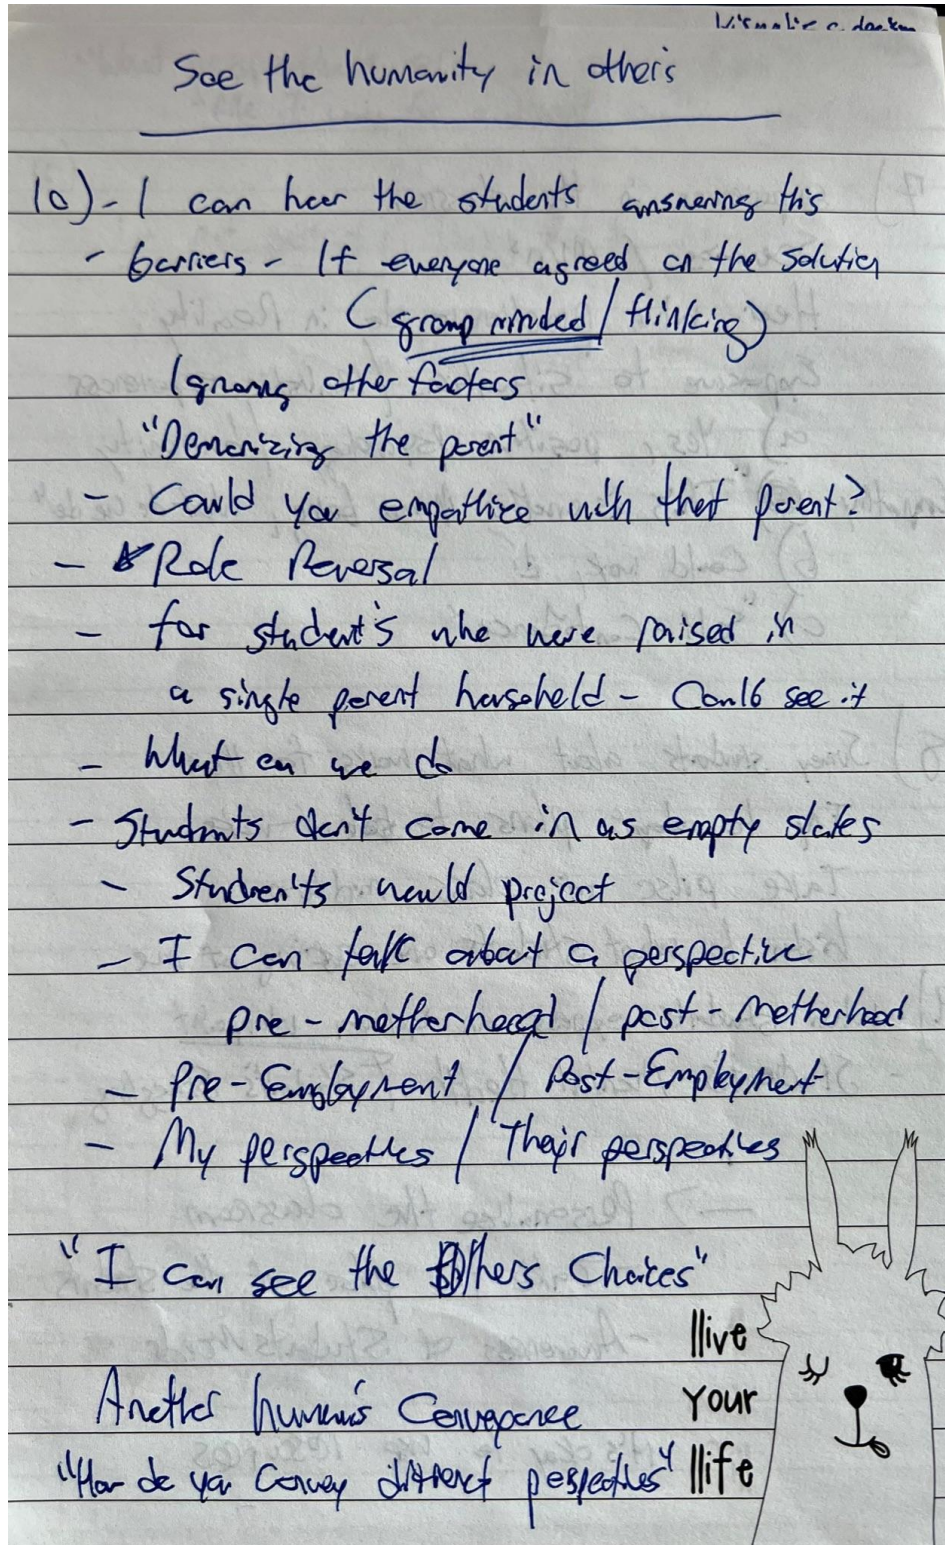 See the humanity in others
10) - I can hear the students answering this
- barriers - If everyone agreed on the solution
(group minded / thinking)
Ignoring other factors
"Demonizing the parent"
- Could you empathize with that parent?
- Role Reversal
- for student's who were raised in
a single parent household - Could see it
- What can we do
- Students don't come in as empty slates
- Students would project
- I can talk about a perspective
pre - motherhood / post - Motherhood
- Pre - Employment / Post - Employment
- My perspectives / Their perspectives
"I can see the Others Choices"
llive
Another human's
your
"How do you convey different perspectives"
llife